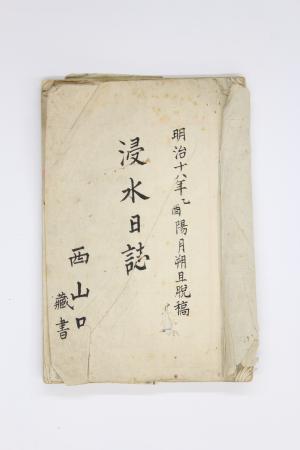 明治十八年乙酉陽月朔旦脱稿
浸水日誌
西山口
藏書